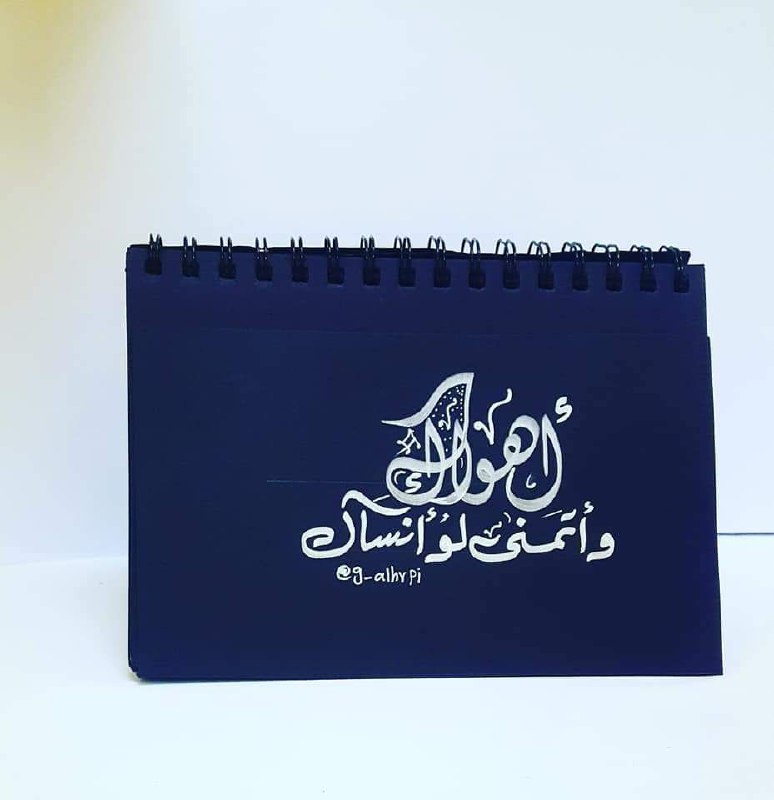 أهواك
وأتمنى لو أنساك
@g_alhrpi